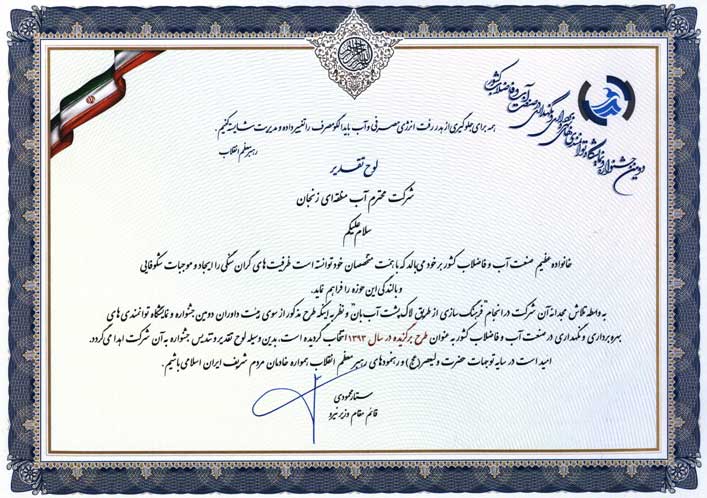 دومین جشنواره و نمایشگاه توانمندی‌های بهره‌برداری و نگهداری در صنعت آب و فاضلاب کشور
همه برای جلوگیری از هدر رفت انرژی مصرفی و آب باید الگو مصرف را تغییر داده و مدیریت شایسته کنیم.
رهبر معظم انقلاب
لوح تقدیر
شرکت محترم آب منطقه‌ای زنجان
سلام علیکم
خانواده عظیم صنعت آب و فاضلاب کشور بر خود می‌بالد که با همت متخصصان خود توانسته است ظرفیت‌های گران سنگی را ایجاد و موجبات شکوفایی
و بالندگی این حوزه را فراهم نماید.
به واسطه تلاش مجدانه آن شرکت در انجام "فرهنگ سازی از طریق لاک پشت آب بان" و نظر به اینکه طرح مذکور از سوی هیئت داوران دومین جشنواره و نمایشگاه توانمندی های
بهره‌برداری و نگهداری در صنعت آب و فاضلاب کشور به عنوان طرح برگزیده در سال ۱۳۹۳ انتخاب گردیده است، بدین وسیله لوح تقدیر و تندیس جشنواره به آن شرکت اهدا می‌گردد.
امید است در سایه توجهات حضرت ولیعصر (عج) و رهنمودهای رهبر معظم انقلاب همواره خادمان مردم شریف ایران اسلامی باشیم.
ستار محمودی
قائم مقام وزیر نیرو